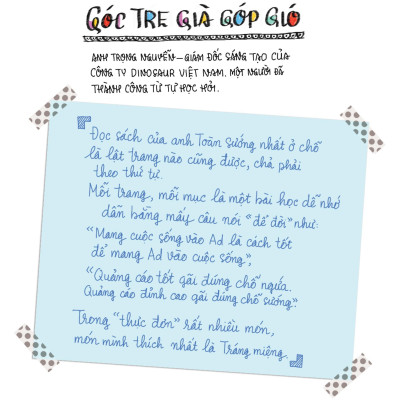 GÓC TRE GIÀ GÓP GIÓ
ANH TRỌNG NGUYỄN – GIÁM ĐỐC SÁNG TẠO CỦA
CÔNG TY DINOSAUR VIỆT NAM. MỘT NGƯỜI ĐÃ
THÀNH CÔNG TỪ TỰ HỌC HỎI.
Đọc sách của anh Toàn sướng nhất ở chỗ
là lật trang nào cũng được, chả phải
theo thứ tự.
Mỗi trang, mỗi mục là một bài học dễ nhớ
dần bằng mấy câu nói "để đời" như:
"Mang cuộc sống vào Ad là cách tốt
để mang Ad vào cuộc sống",
"Quảng cáo tốt gãi đúng chỗ ngứa.
Quảng cáo đỉnh cao gãi đúng chỗ sướng".
Trong "thực đơn" rất nhiều món,
món mình thích nhất là Tráng miệng.